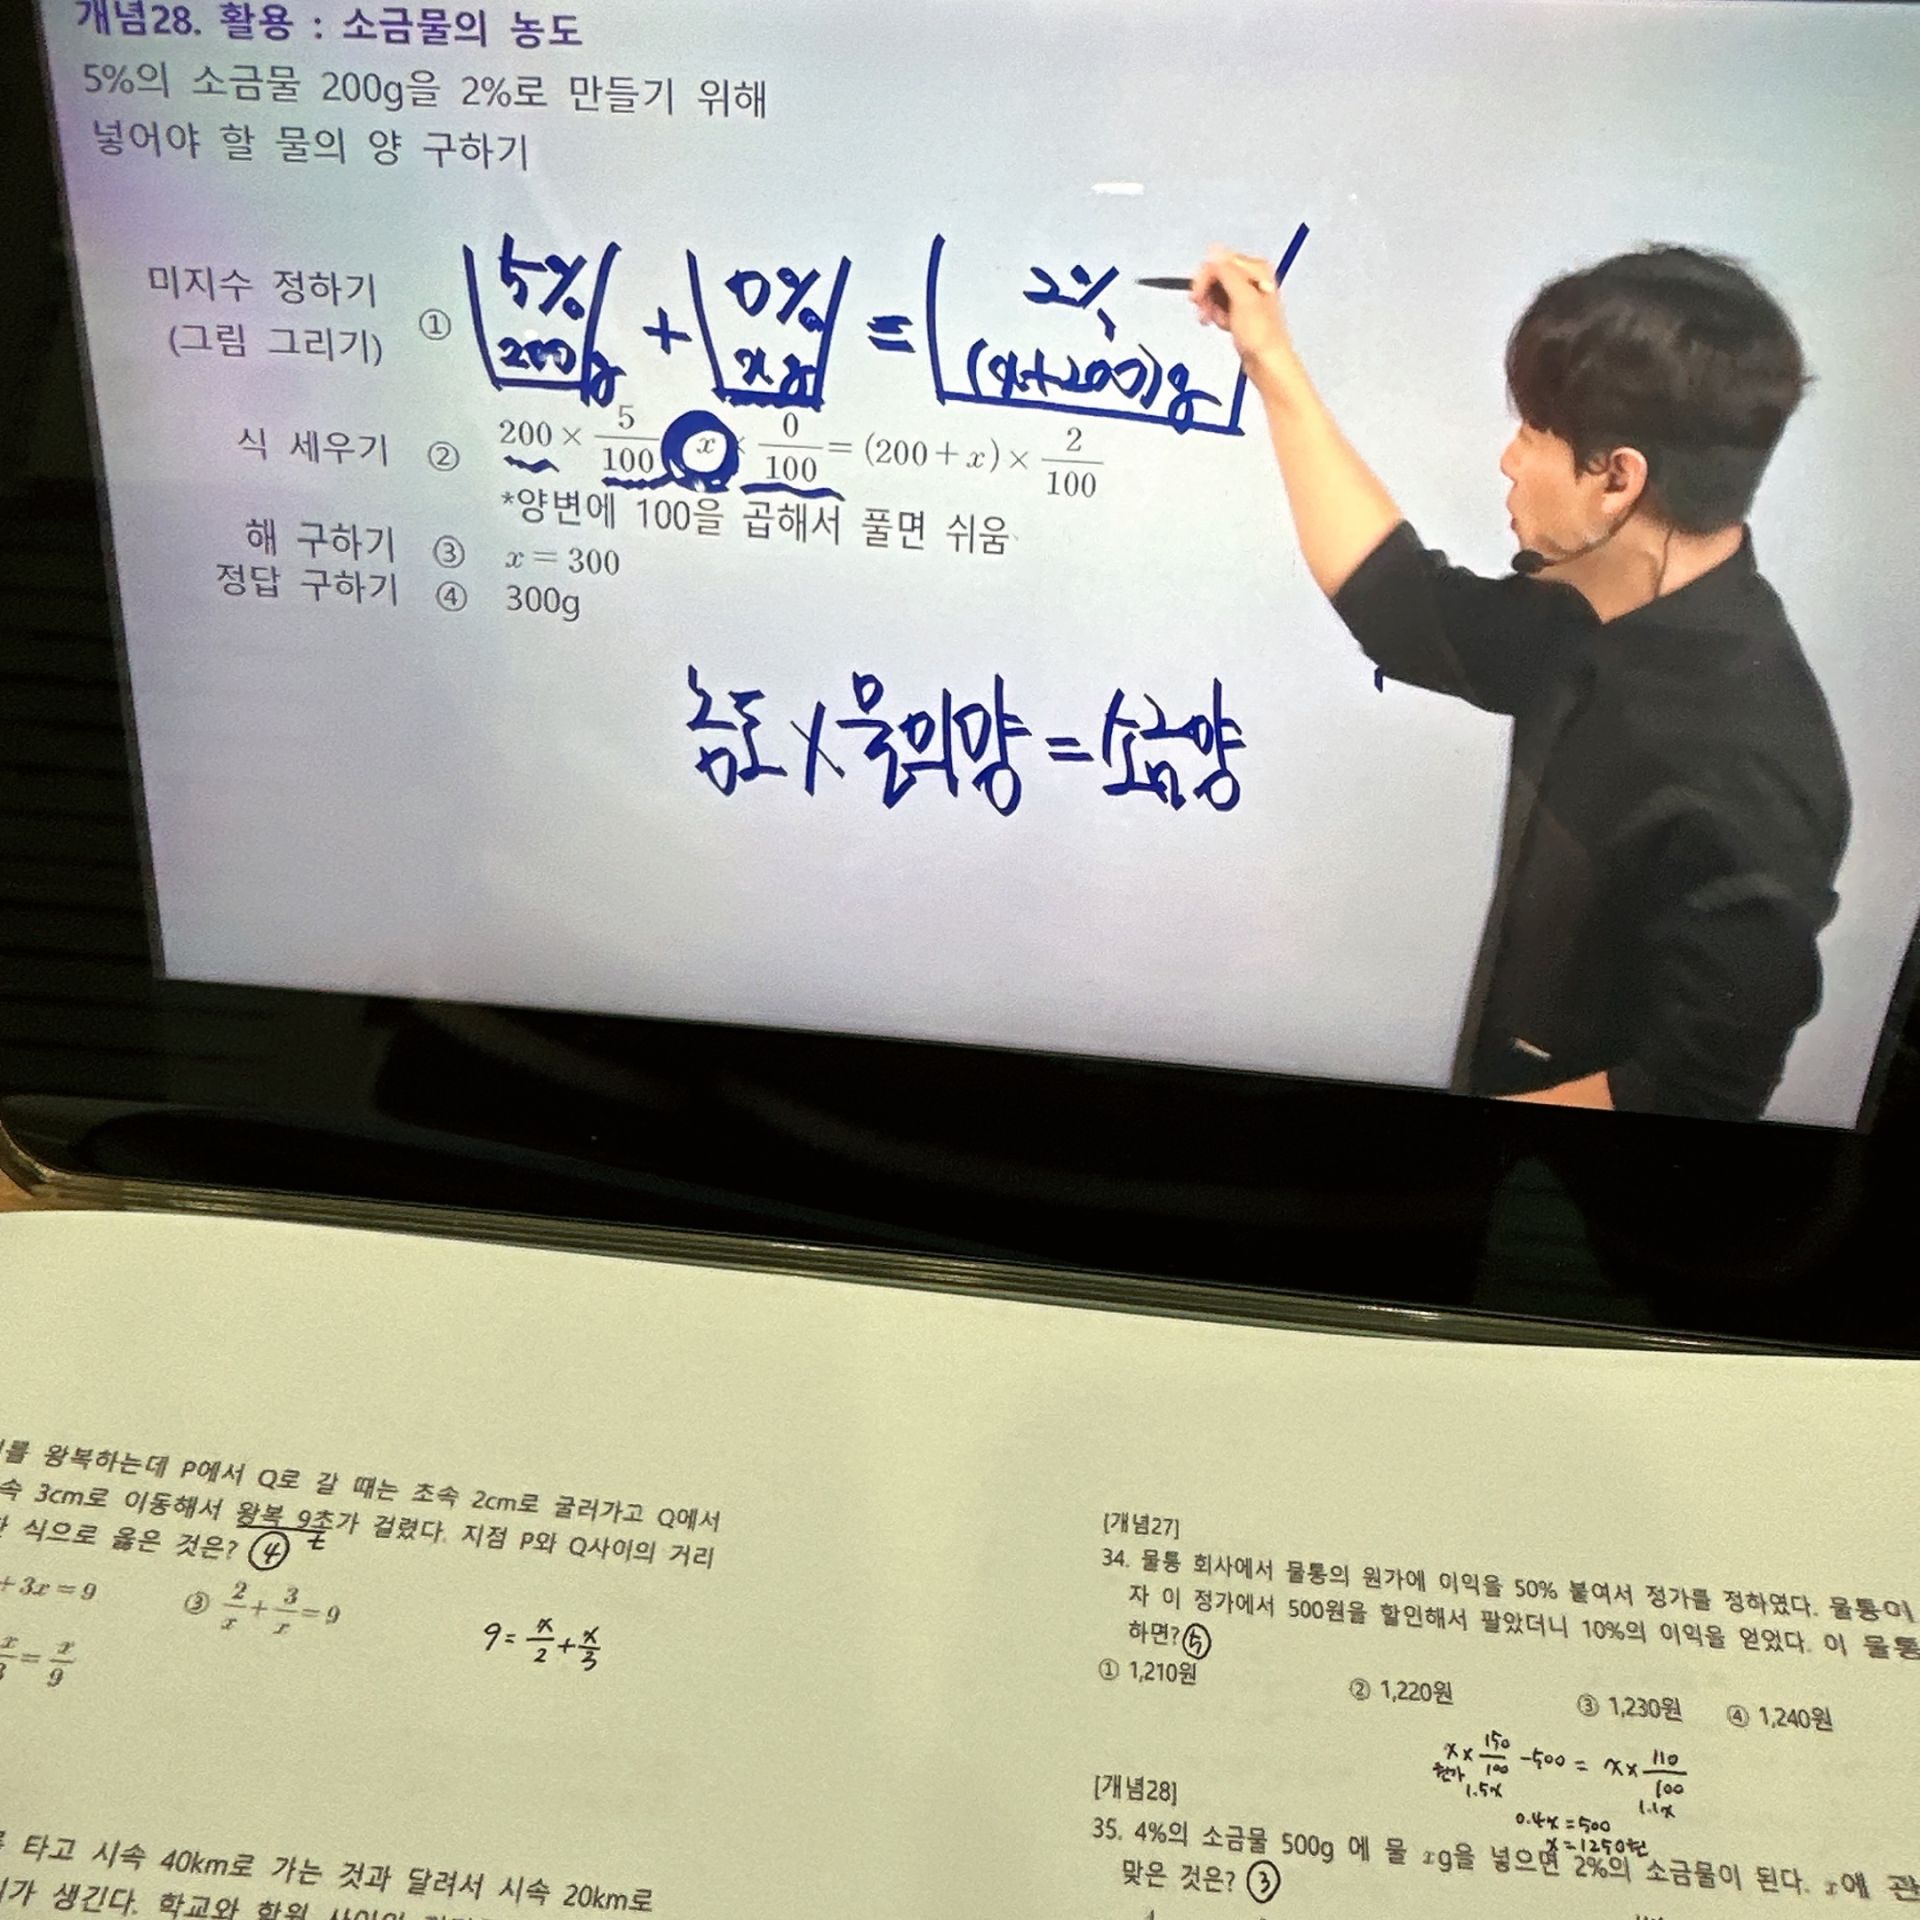 개념28. 활용 : 소금물의 농도
5%의 소금물 200g을 2%로 만들기 위해
넣어야 할 물의 양 구하기
미지수 정하기
(그림 그리기)
①
5% 200g + 0% xg = 2% (x+200)g
식 세우기 ② 200 × 5/100 x × 0/100 = (200+x) × 2/100
*양변에 100을 곱해서 풀면 쉬움
해 구하기 ③ x = 300
정답 구하기 ④ 300g
농도 × 물의양 = 소금양
를 왕복하는데 P에서 Q로 갈 때는 초속 2cm로 굴러가고 Q에서
속 3cm로 이동해서 왕복 9초가 걸렸다. 지점 P와 Q사이의 거리
식으로 옳은 것은? ④ t
+3x=9 ③ 2/x + 3/x = 9
= x/9
9 = x/2 + x/3
타고 시속 40km로 가는 것과 달려서 시속 20km로
가 생긴다. 학교와 학원 사이의
[개념27]
34. 물통 회사에서 물통의 원가에 이익을 50% 붙여서 정가를 정하였다. 물통이
자 이 정가에서 500원을 할인해서 팔았더니 10%의 이익을 얻었다. 이 물통
하면? ⑤
① 1,210원 ② 1,220원 ③ 1,230원 ④ 1,240원
x × 150/100 - 500 = x × 110/100
원가 1.5x 1.1x
0.4x = 500
x = 1250원
[개념28]
35. 4%의 소금물 500g 에 물 xg을 넣으면 2%의 소금물이 된다. x에 관
맞은 것은? ③